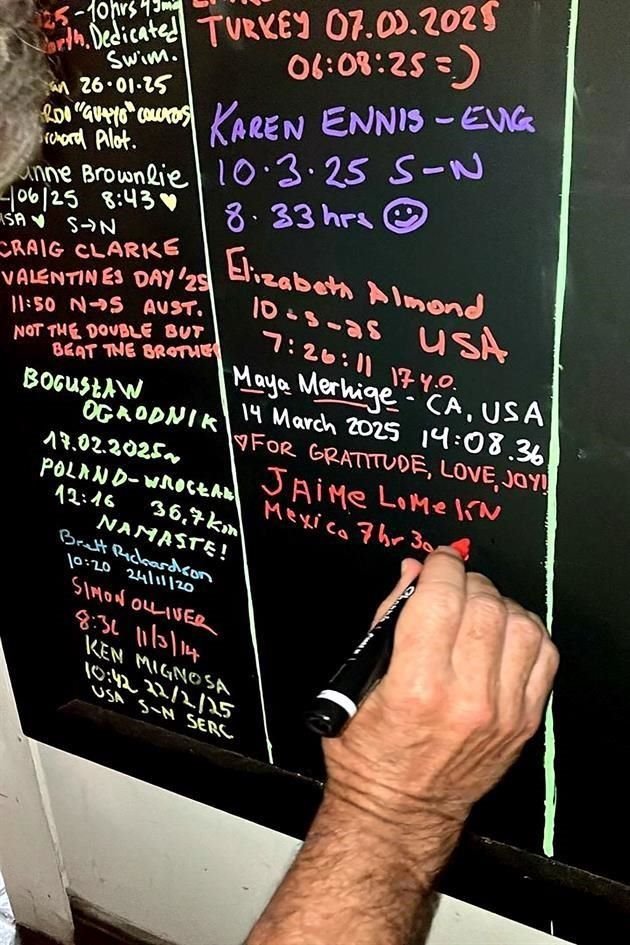 25 - 10hrs 49min
North. Dedicated
Swim.
26.01.25
"GUAYO"
Pilot.
anne Brownlie
/06/25 8:43 ♥
USA ♥ S→N
CRAIG CLARKE
VALENTINES DAY '25
11:50 N→S AUST.
NOT THE DOUBLE BUT
BEAT THE BROTHER
BOGUSŁAW
OGRODNIK
17.02.2025
POLAND-WROCŁAW
12:16 36,7km
NAMASTE!
Brett Richardson
10:20 24/11/20
SIMON OLLIVER
8:36 11/3/14
KEN MIGNOSA
10:42 22/2/25
USA S-N SERC
TURKEY 07.03.2025
06:08:25 =)
KAREN ENNIS - ENG
10.3.25 S-N
8.33hrs ☺
Elizabeth Almond
10-3-25 USA
7:26:11
17 Y.O.
Maya Merhige - CA, USA
14 March 2025 14:08.36
♡FOR GRATITUDE, LOVE, JOY!
JAIME LOMELIN
Mexico 7hr 30